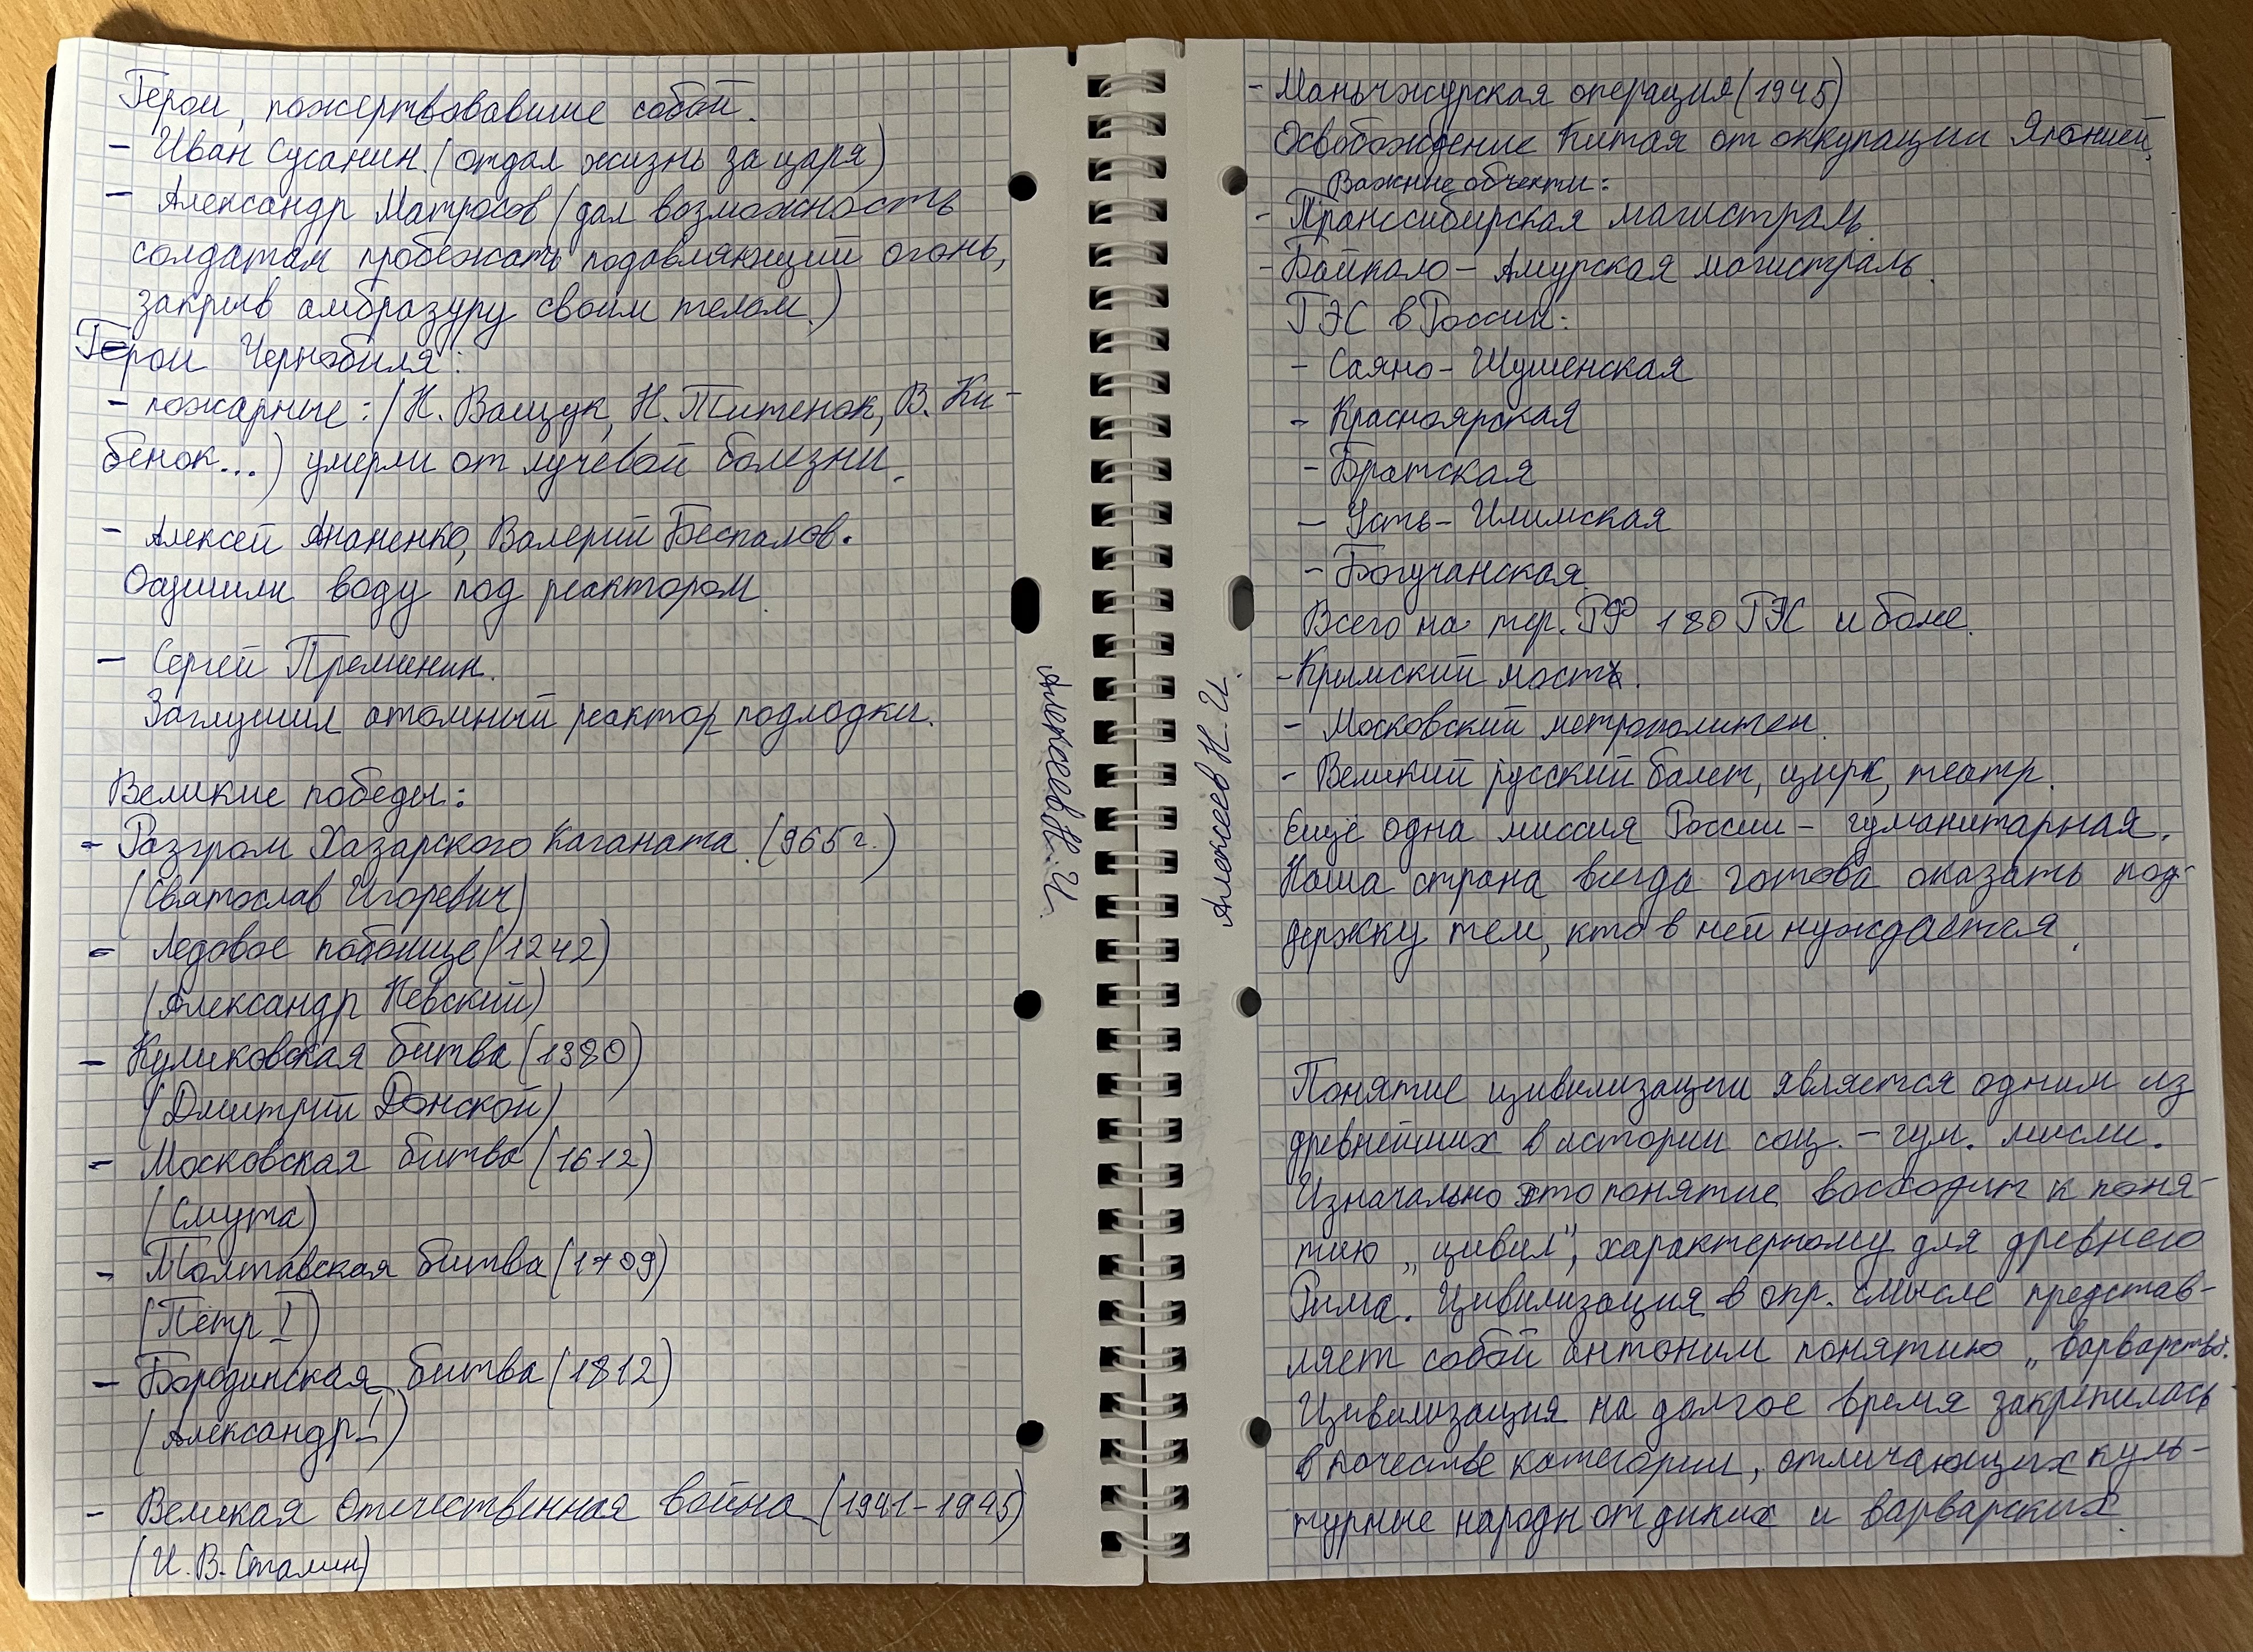 Герои, пожертвовавшие собой.
- Иван Сусанин. (отдал жизнь за царя)
- Александр Матросов (дал возможность
солдатам пробежать подавляющий огонь,
закрыв амбразуру своим телом.)
Герои Чернобыля:
- пожарные: (Н. Ващук, Н. Титенок, В. Ки-
бенок...) умерли от лучевой болезни.
- Алексей Ананенко, Валерий Беспалов.
Осушили воду под реактором.
- Сергей Преминин.
Заглушил атомный реактор подлодки.
Великие победы:
- Разгром Хазарского Каганата. (965 г.)
(Святослав Игоревич)
- Ледовое побоище (1242)
(Александр Невский)
- Куликовская битва (1380)
(Дмитрий Донской)
- Московская битва (1612)
(Смута)
- Полтавская битва (1709)
(Пётр I)
- Бородинская битва (1812)
(Александр I)
- Великая Отечественная война (1941-1945)
(И. В. Сталин)
Алексеев Н. И.
Алексеев Н. И.
- Маньчжурская операция (1945)
Освобождение Китая от оккупации Японией.
Важные объекты:
- Транссибирская магистраль.
- Байкало - Амурская магистраль.
ГЭС в России:
- Саяно - Шушенская
- Красноярская
- Братская
- Усть - Илимская
- Богучанская
Всего на тер. РФ 180 ГЭС и более.
- Крымский мост.
- Московский метрополитен.
- Великий русский балет, цирк, театр.
Ещё одна миссия России - гуманитарная.
Наша страна всегда готова оказать под-
держку тем, кто в ней нуждается.
Понятие цивилизации является одним из
древнейших в истории соц. - гум. мысли.
Изначально это понятие восходит к поня-
тию „цивил", характерному для древнего
Рима. Цивилизация в опр. смысле представ-
ляет собой антоним понятию „варварство".
Цивилизация на долгое время закрепилась
в качестве категории, отличающих куль-
турные народы от диких и варварских.